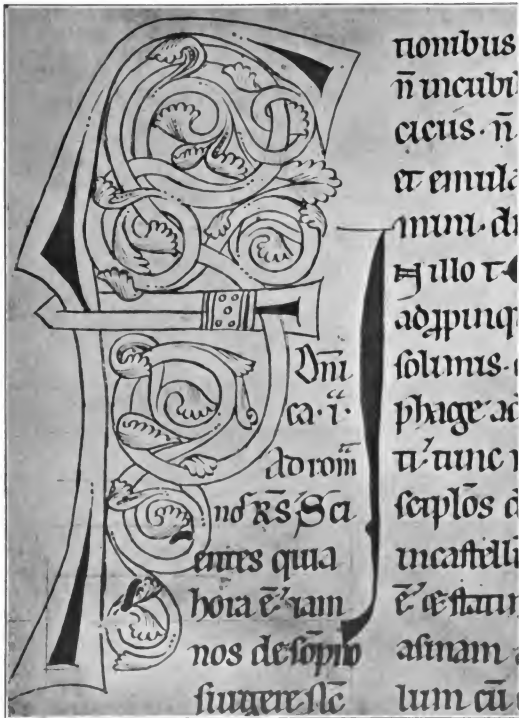 Dn̄i
ca·i·
Ad rom̄
nos R̄S Sci
entes quia
hora ē iam
nos de sōpno
surgere
tionibus
n̄ incubil
cicus· n̄
et emula
mini· 
N illo t·
adꝓpinq
solimis·
phage· ad
ti· tunc
sciplōs d
incastell
ē· & statim
asinam
lum cū